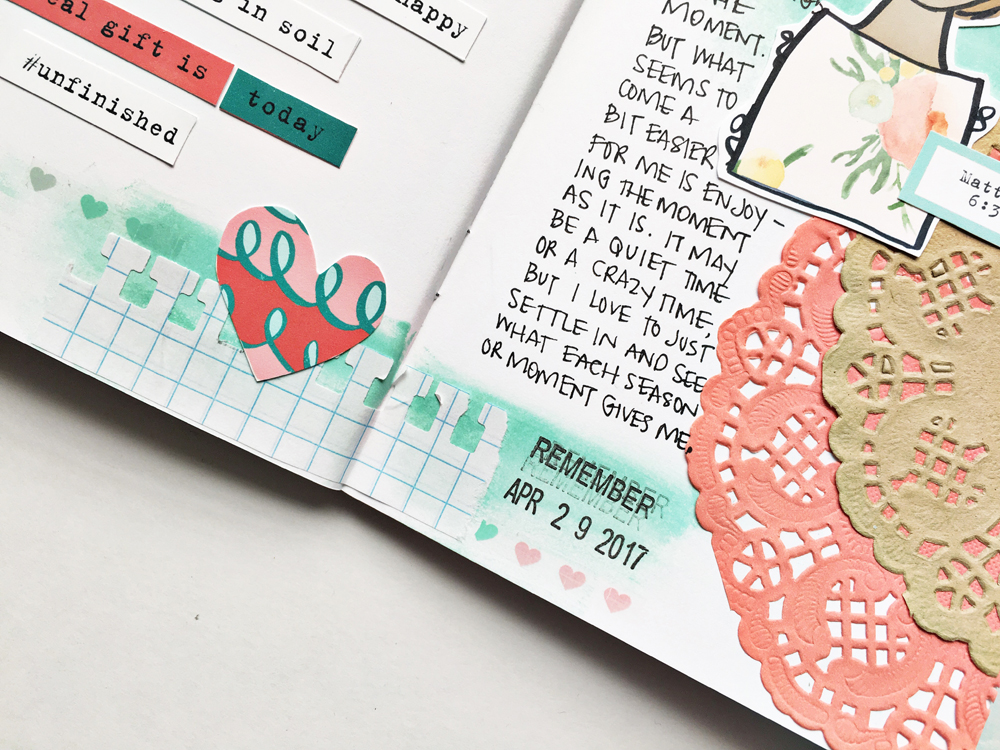 happy
in soil
gift is
today
#unfinished
THE
MOMENT.
BUT WHAT
SEEMS TO
COME A
BIT EASIER
FOR ME IS ENJOY-
ING THE MOMENT
AS IT IS. IT MAY
BE A QUIET TIME
OR A CRAZY TIME,
BUT I LOVE TO JUST
SETTLE IN AND SEE
WHAT EACH SEASON
OR MOMENT GIVES ME.
REMEMBER
APR 29 2017
Matt
6:3